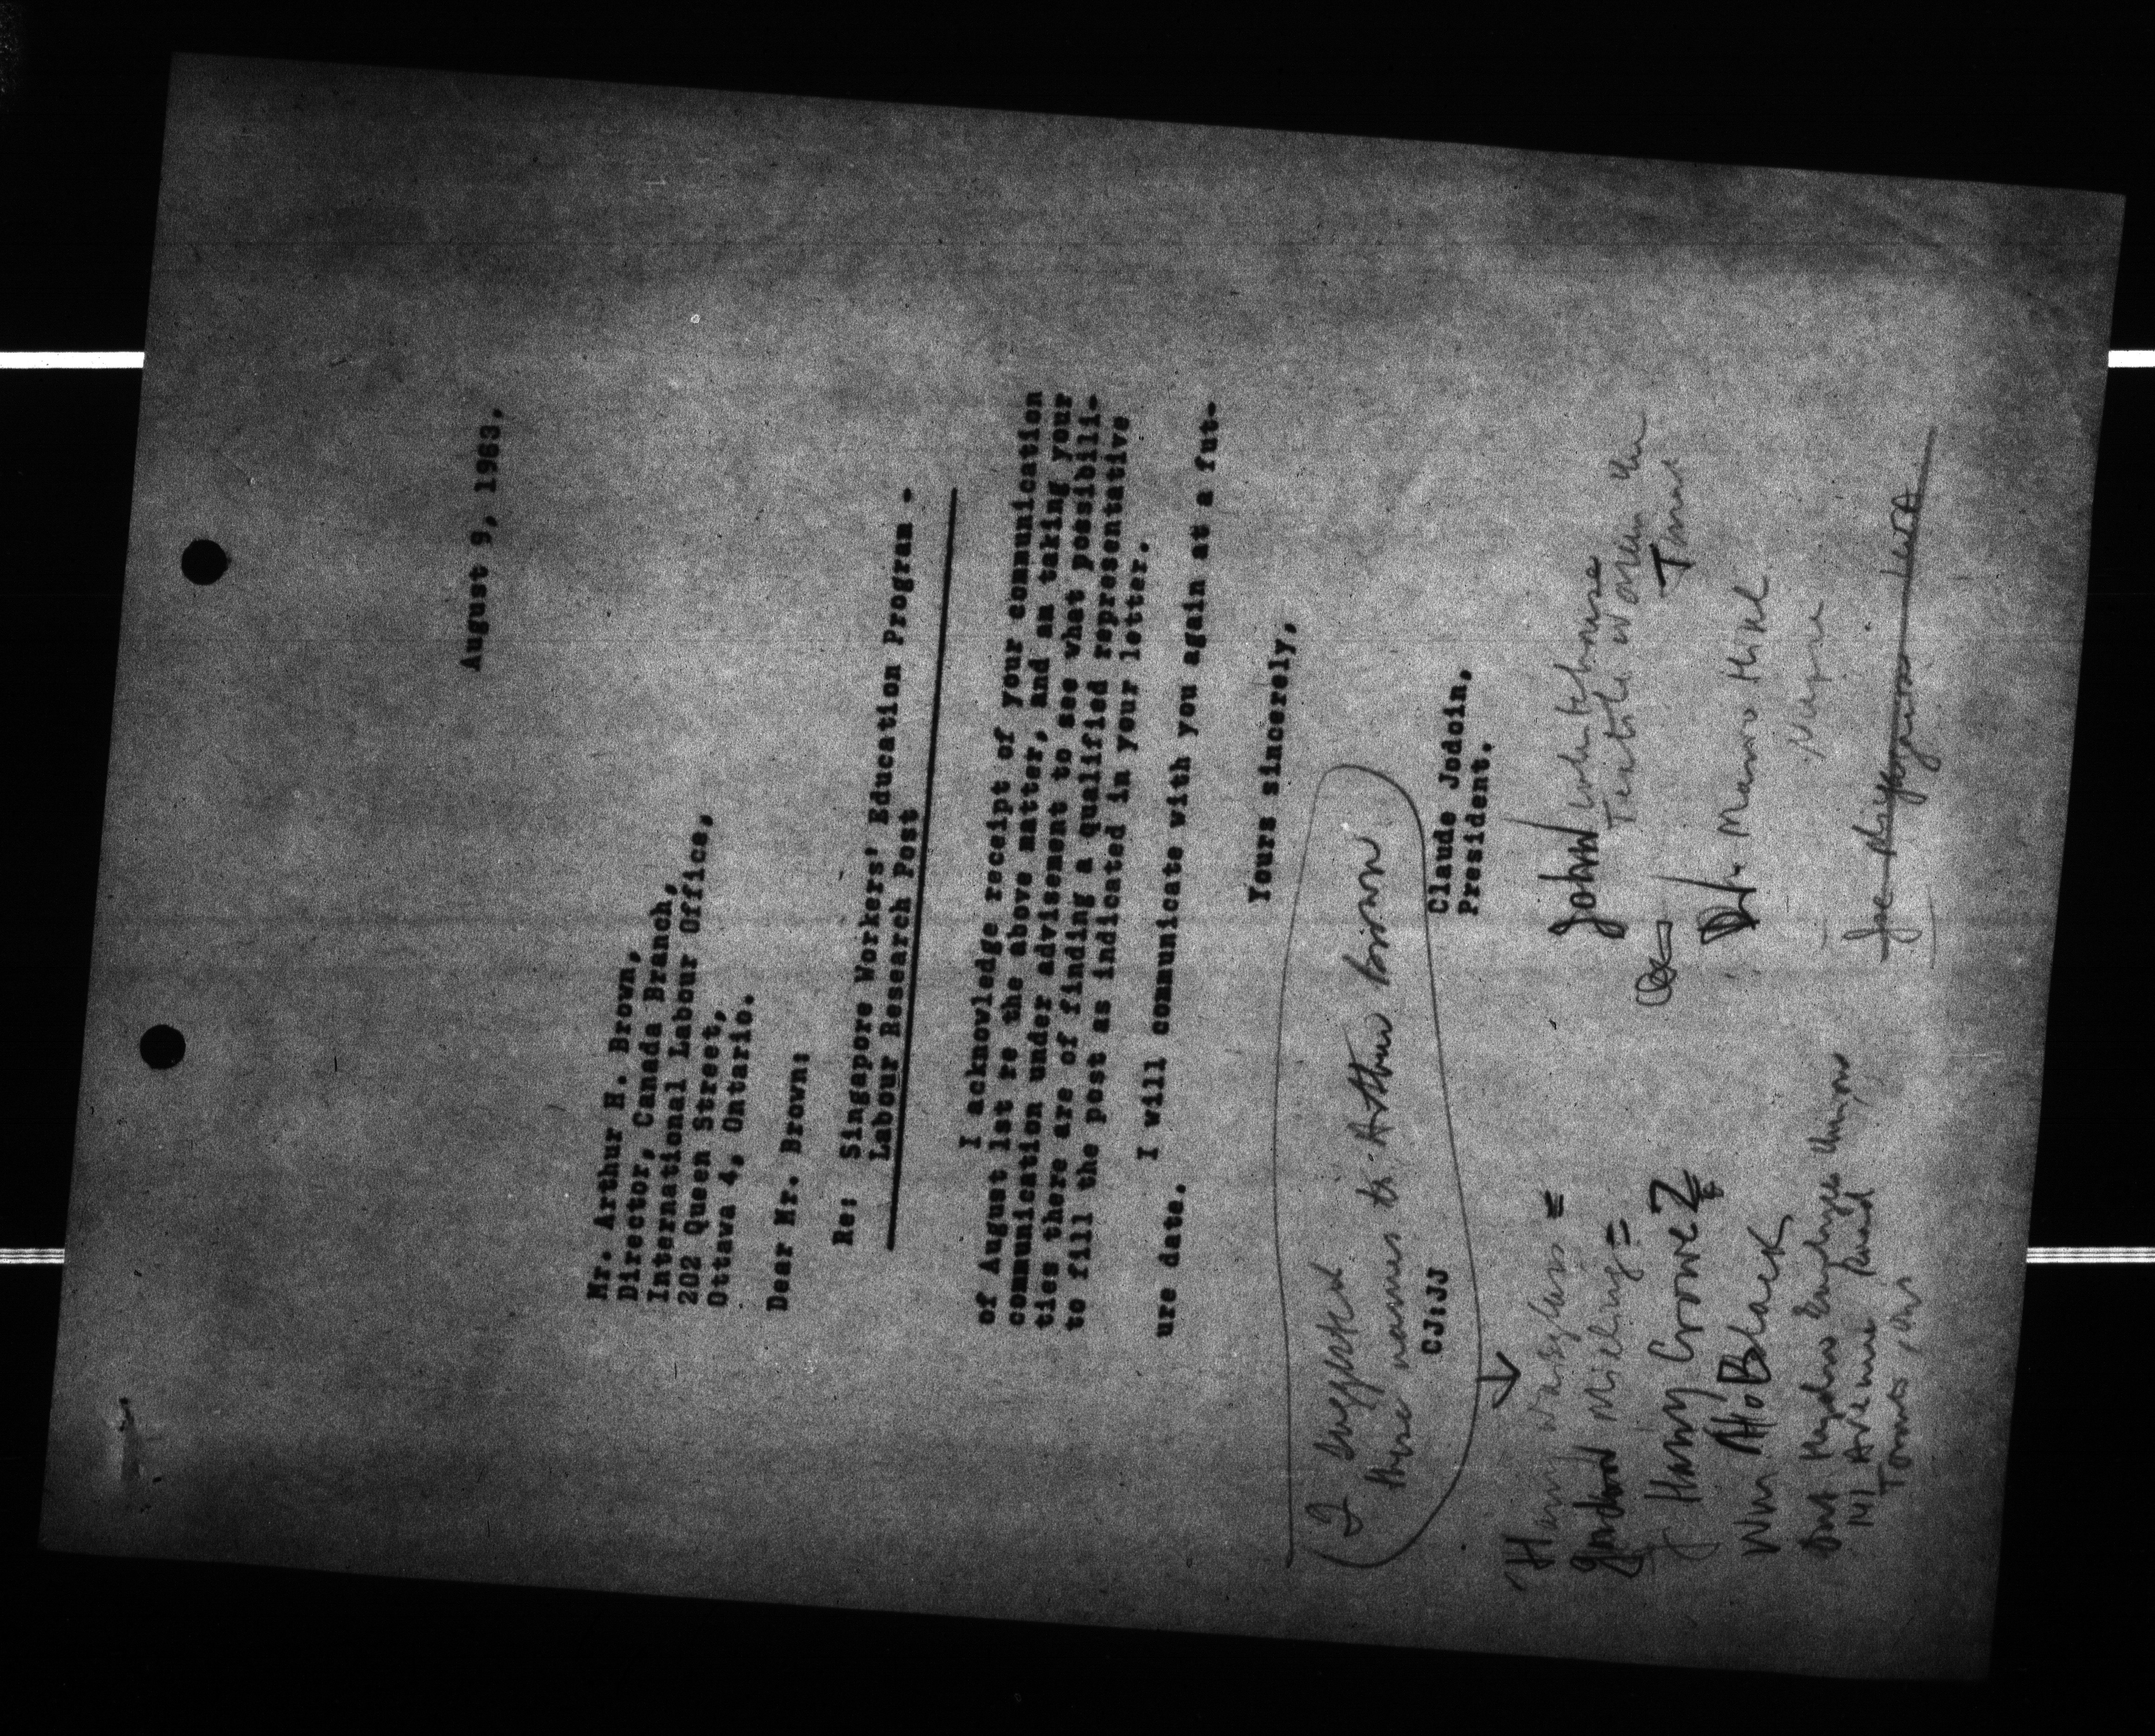 August 9, 1963.
Mr. Arthur H. Brown,
Director, Canada Branch,
International Labour Office,
202 Queen Street,
Ottawa 4, Ontario.
Dear Mr. Brown:
Re: Singapore Workers' Education Program -
Labour Research Post
I acknowledge receipt of your communication
of August 1st re the above matter, and am taking your
communication under advisement to see what possibili-
ties there are of finding a qualified representative
to fill the post as indicated in your letter.
I will communicate with you again at a fut-
ure date.
Yours sincerely,
I suggested
these names to Arthur Brown
Claude Jodoin,
President.
CJ:JJ
Harry Waisglass =
Gordon Milling =
Harry Crowe ?
Wm Black
Ont Hydro Employees Union
141 Avenue Road
Toronto, Ont
John Whitehouse
Textile Workers Un
Dr.
Joe LWA